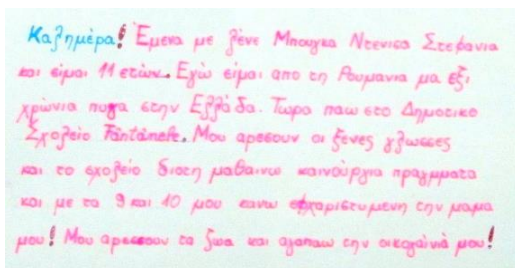 Καλημέρα! Εμενα με λενε Μπουγκα Ντενισα Στεφανια
και είμαι 11 ετών. Εγώ είμαι απο τη Ρουμανια μα εξι
χρώνια πηγα στην Ελλάδα. Τωρα παω στο Δημοτικο
Σχολείο Fântânele. Μου αρεσουν οι ξενες γλωσσες
και το σχολείο διοτη μαθαινω καινούργια πραγματα
και με τα 9 και 10 μου κανω εφχαριστυμενη την μαμα
μου! Μου αρεσουν τα ζωα και αγαπαω την οικογαίνιά μου!